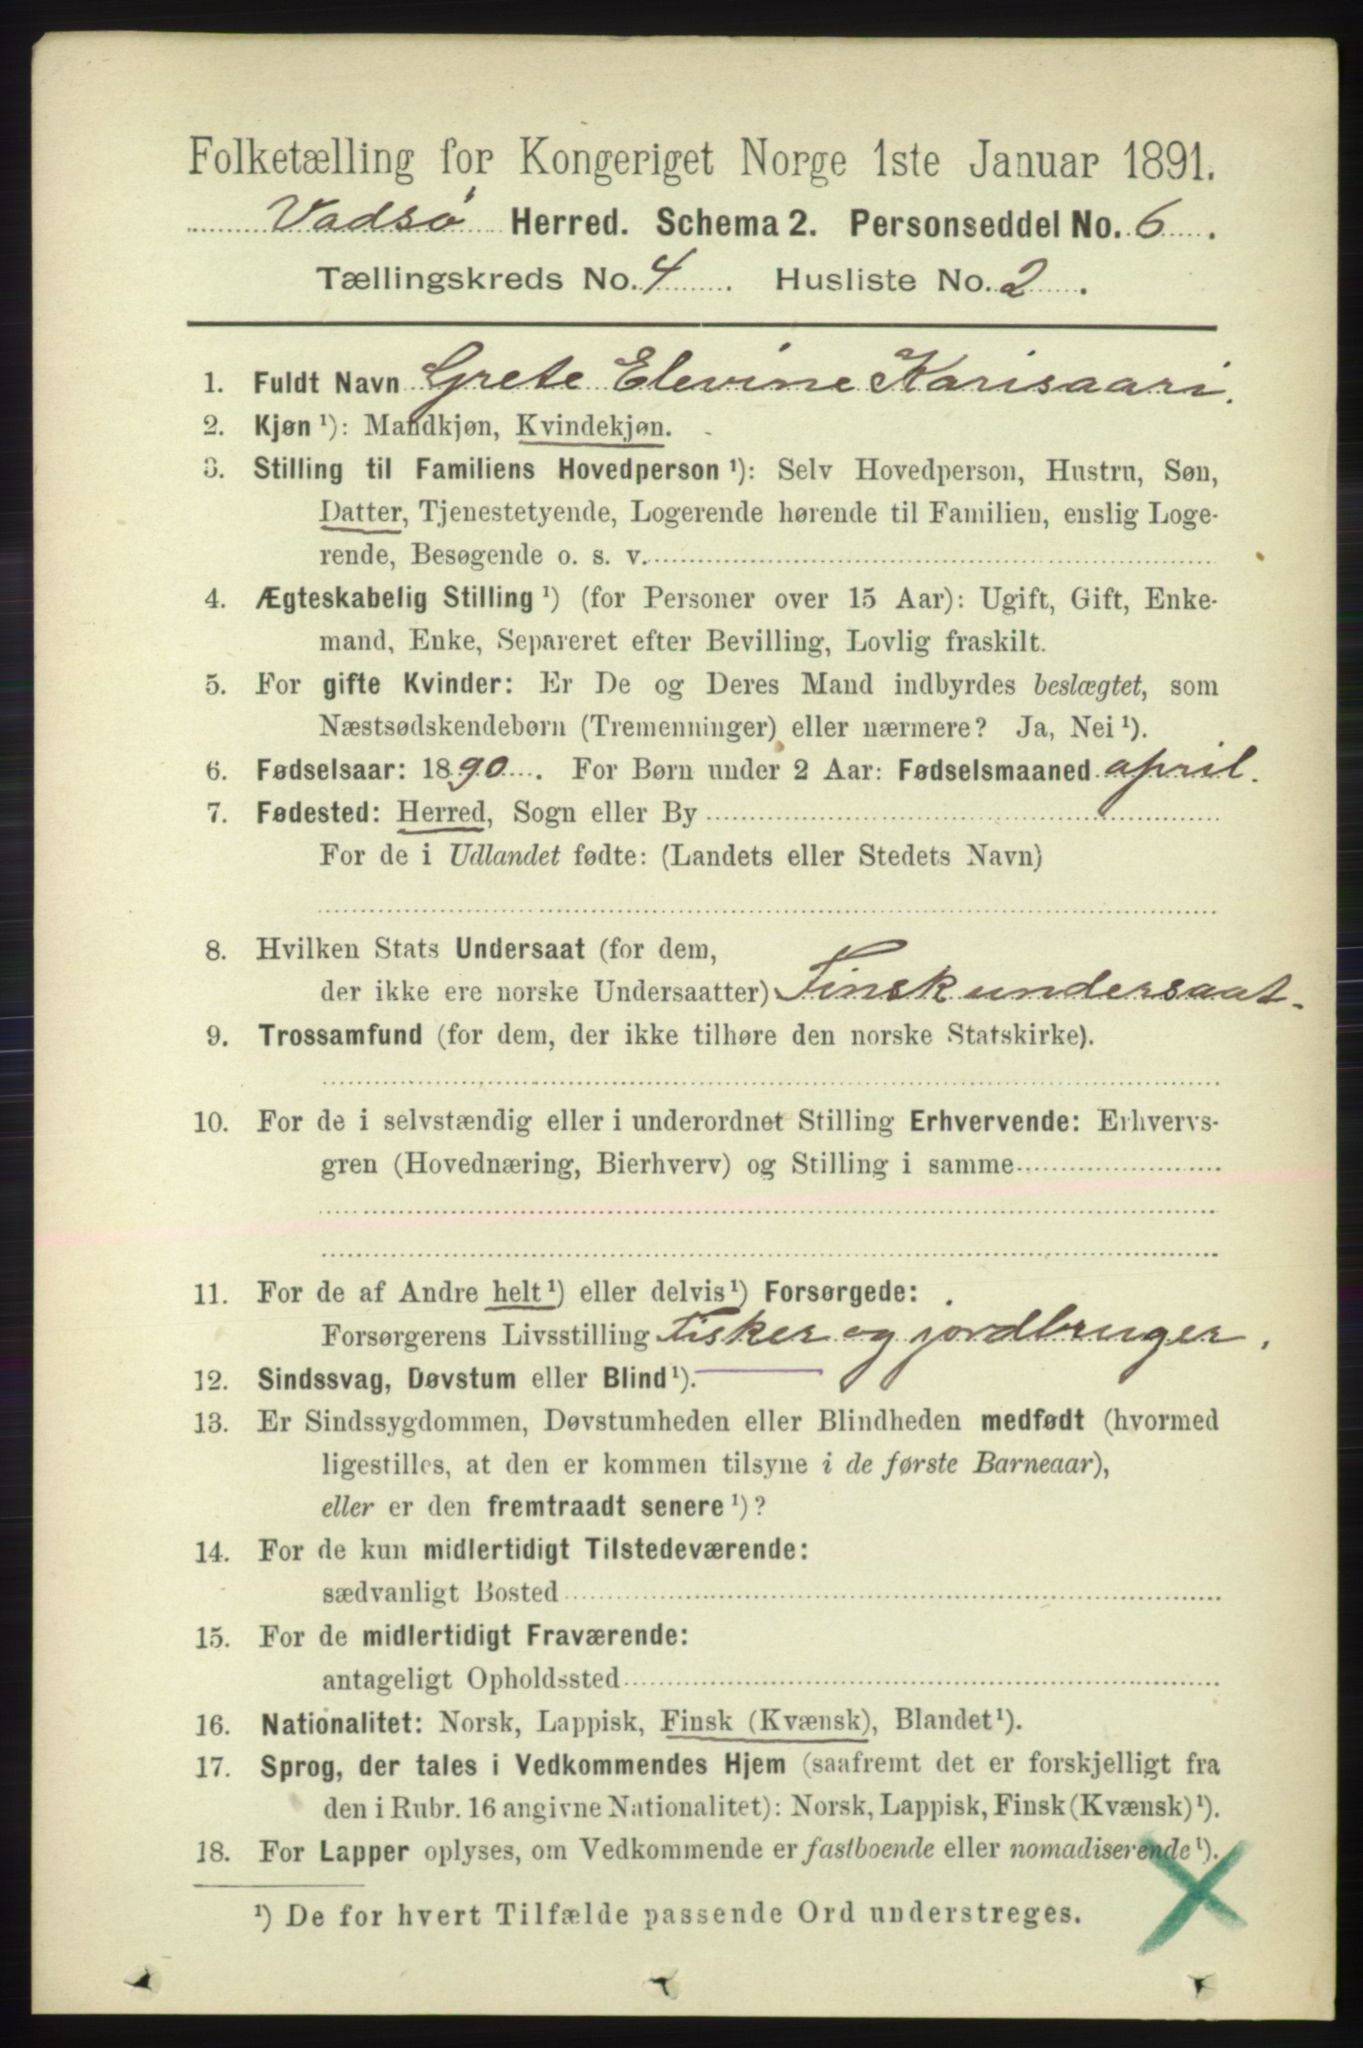 Folketælling for Kongeriget Norge 1ste Januar 1891.
Vadsø Herred. Schema 2. Personseddel No. 6.
Tællingskreds No. 4. Husliste No. 2.
1. Fuldt Navn Grete Elevine Karisaari.
2. Kjøn ¹): Mandkjøn, Kvindekjøn.
3. Stilling til Familiens Hovedperson ¹): Selv Hovedperson, Hustru, Søn,
Datter, Tjenestetyende, Logerende hørende til Familien, enslig Loge-
rende, Besøgende o. s. v.
4. Ægteskabelig Stilling ¹) (for Personer over 15 Aar): Ugift, Gift, Enke-
mand, Enke, Separeret efter Bevilling, Lovlig fraskilt.
5. For gifte Kvinder: Er De og Deres Mand indbyrdes beslægtet, som
Næstsødskendebørn (Tremenninger) eller nærmere? Ja, Nei ¹).
6. Fødselsaar: 1890. For Børn under 2 Aar: Fødselsmaaned april.
7. Fødested: Herred, Sogn eller By
For de i Udlandet fødte: (Landets eller Stedets Navn)
8. Hvilken Stats Undersaat (for dem,
der ikke ere norske Undersaatter) Finsk undersaat.
9. Trossamfund (for dem, der ikke tilhøre den norske Statskirke).
10. For de i selvstændig eller i underordnet Stilling Erhvervende: Erhvervs-
gren (Hovednæring, Bierhverv) og Stilling i samme
11. For de af Andre helt ¹) eller delvis ¹) Forsørgede:
Forsørgerens Livsstilling Fisker og jordbruger.
12. Sindssvag, Døvstum eller Blind ¹).
13. Er Sindssygdommen, Døvstumheden eller Blindheden medfødt (hvormed
ligestilles, at den er kommen tilsyne i de første Barneaar),
eller er den fremtraadt senere ¹)?
14. For de kun midlertidigt Tilstedeværende:
sædvanligt Bosted
15. For de midlertidigt Fraværende:
antageligt Opholdssted
16. Nationalitet: Norsk, Lappisk, Finsk (Kvænsk), Blandet ¹).
17. Sprog, der tales i Vedkommendes Hjem (saafremt det er forskjelligt fra
den i Rubr. 16 angivne Nationalitet): Norsk, Lappisk, Finsk (Kvænsk) ¹).
18. For Lapper oplyses, om Vedkommende er fastboende eller nomadiserende ¹).
¹) De for hvert Tilfælde passende Ord understreges.